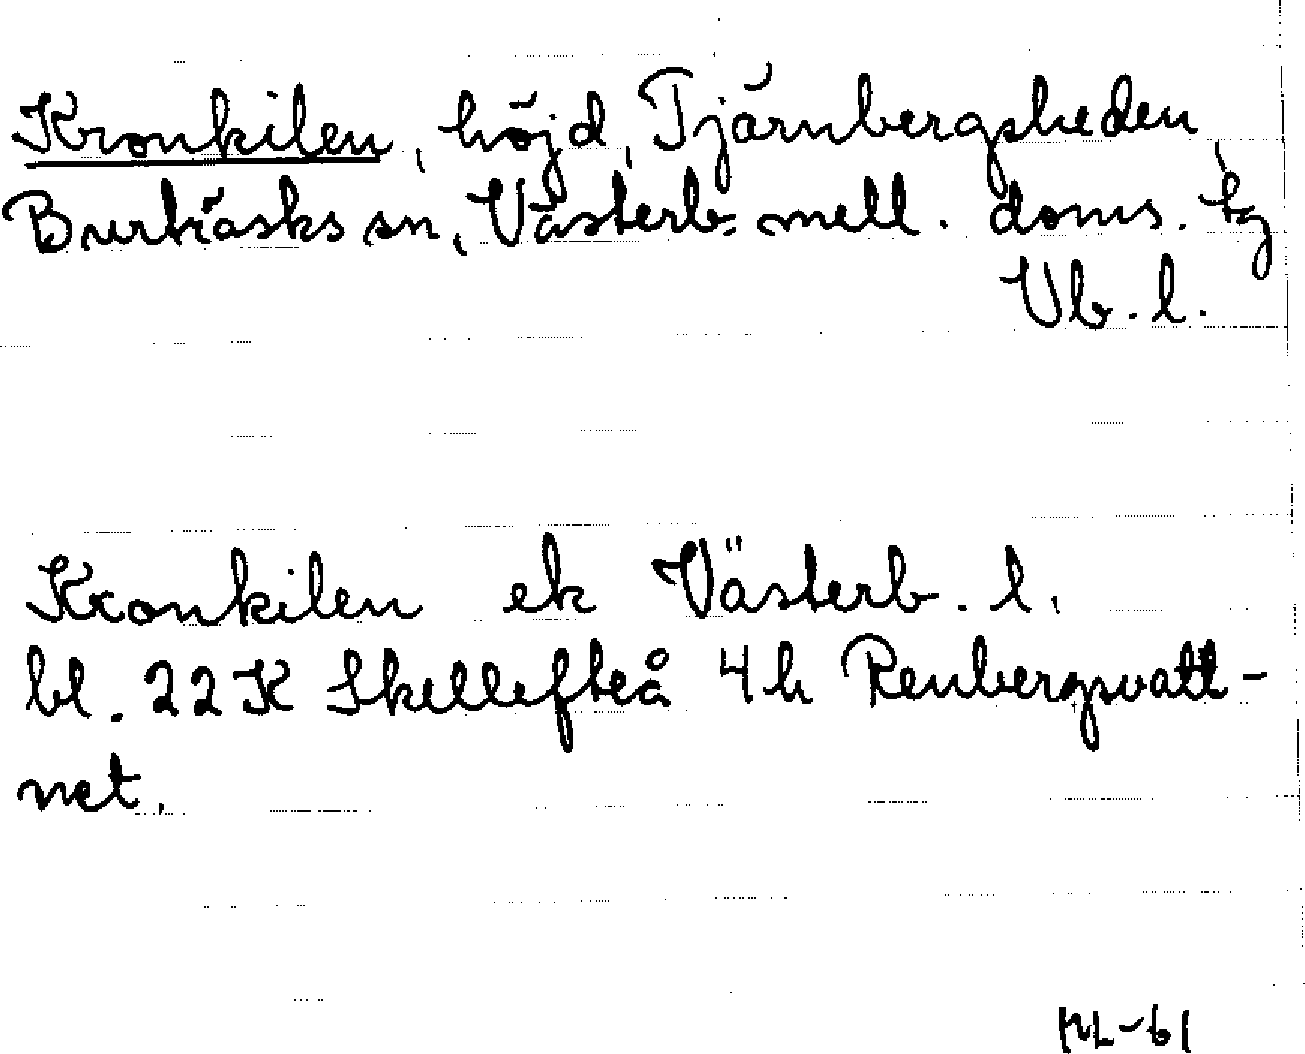 Kronkilen, höjd, Tjärnbergsheden,
Burträsks sn, Västerb. mell. doms. tg
Vb. l.
Kronkilen ek Västerb. l.
bl. 22K Skellefteå 4h Renbergsvatt-
net.